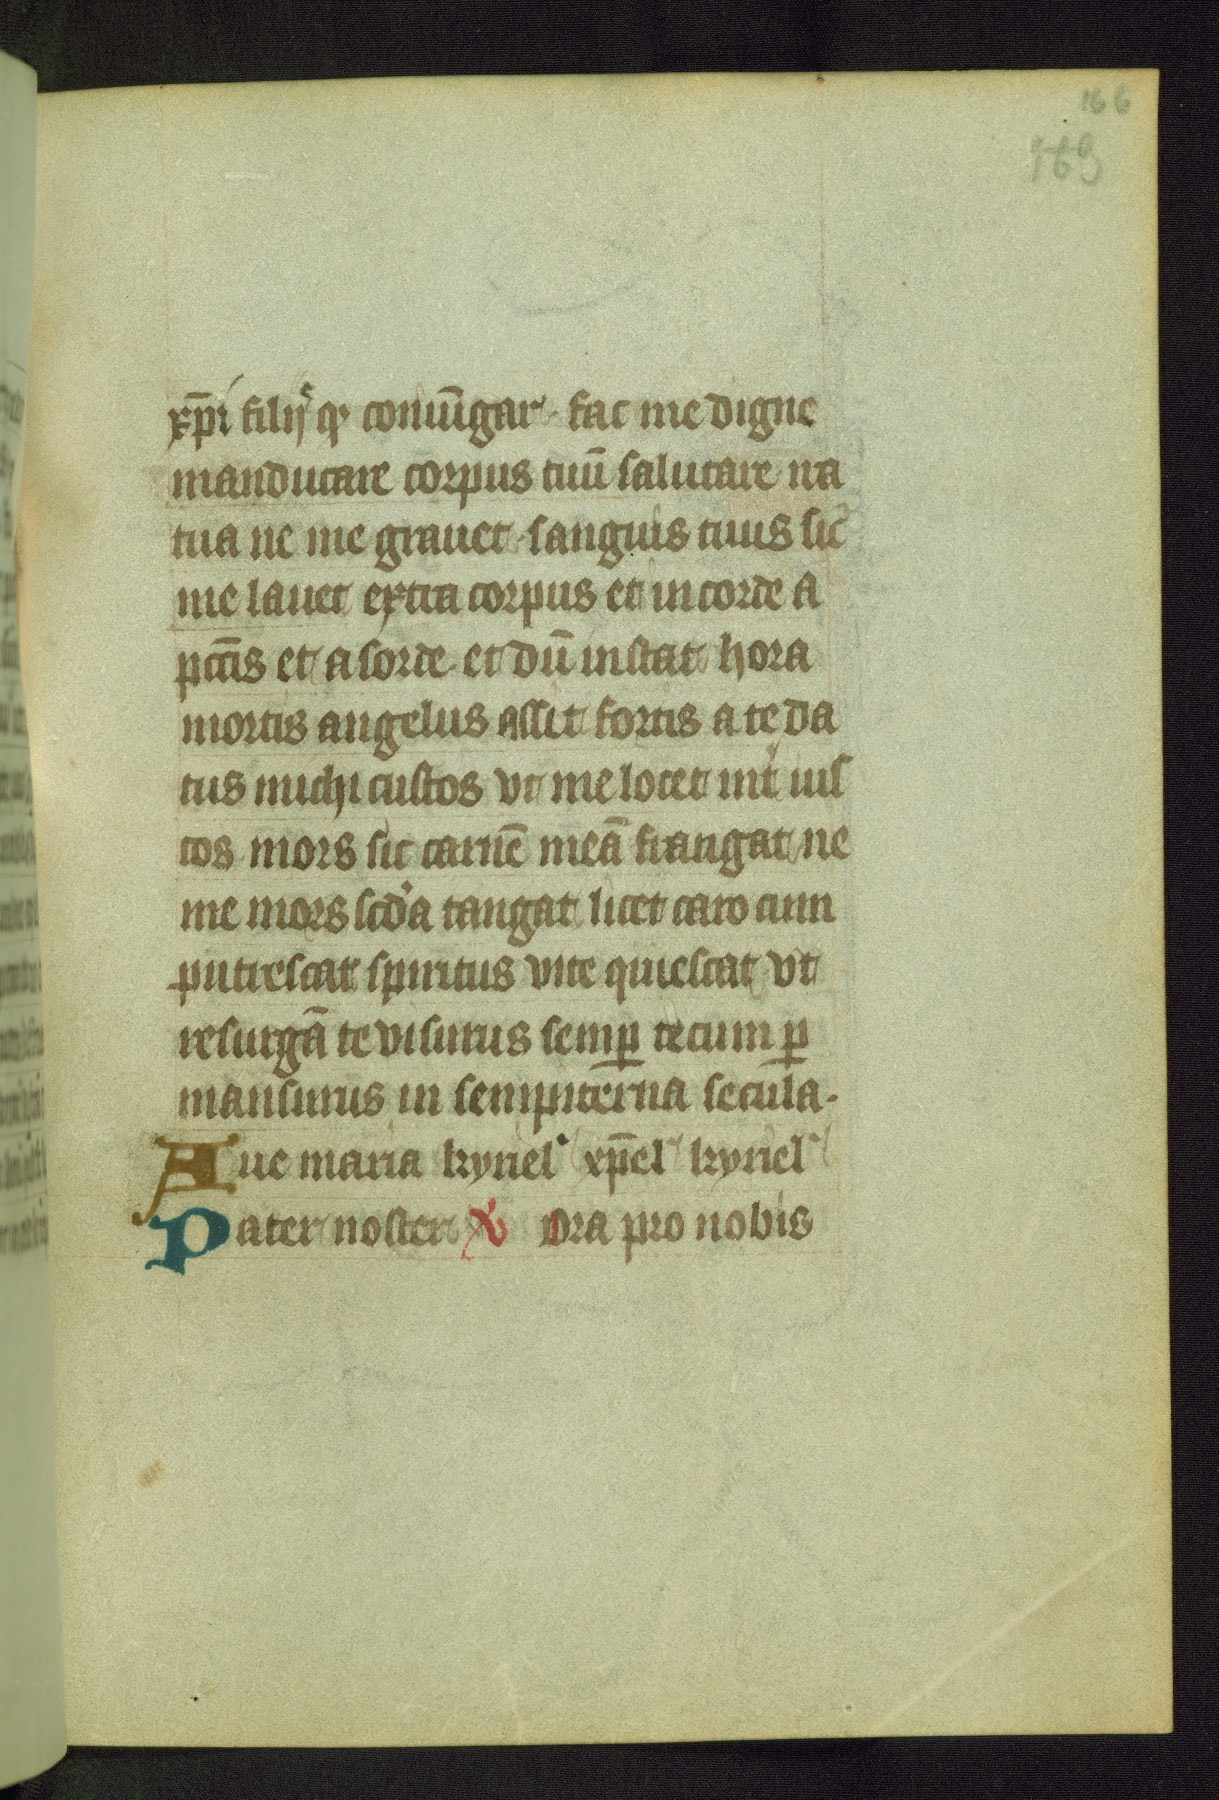 166
169
xp̄i filijsq̨ coniūgar fac me digne
manducare corpus tuū salutare na
tua ne me grauet sanguis tuus sic
me lauet extra corpus et in corde a
pctīs et a sorde et dū instat hora
mortis angelus assit fortis a te da
tus michi custos vt me locet int̉ ius
tos mors sic carnē meā frangat ne
me mors scd̉a tangat licet caro cum
putrescat spiritus vite quiescat vt
resurgā te visurus semꝑ tecum ꝑ
mansurus in sempiterna secula.
Aue maria kyriel' xp̄el' kyriel'
Pater noster ℣ Ora pro nobis